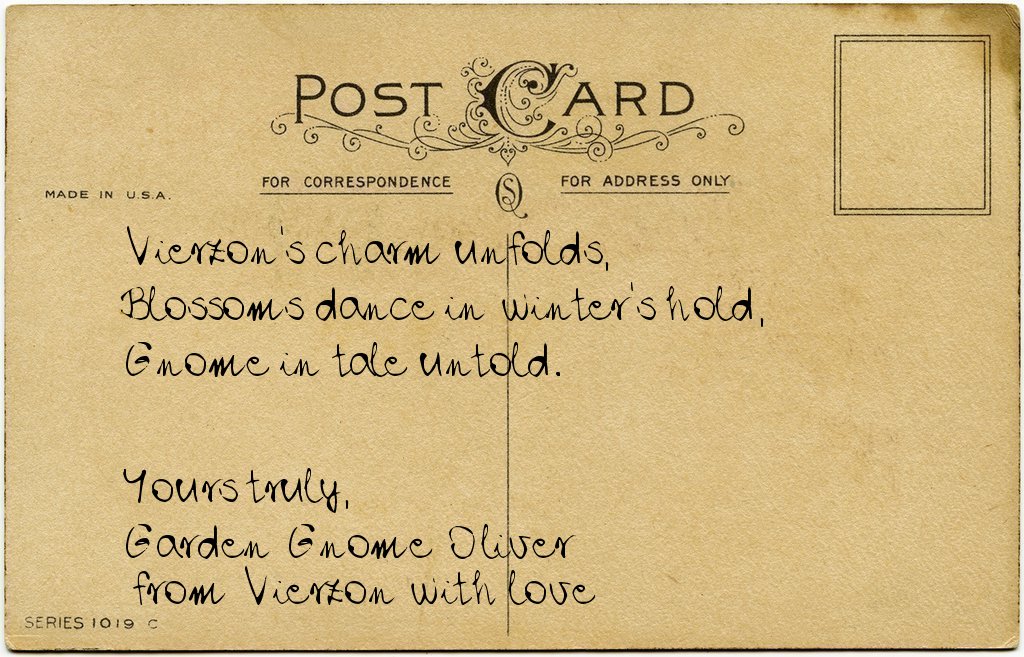 POST CARD
FOR CORRESPONDENCE
FOR ADDRESS ONLY
MADE IN U.S.A.
Vierzon's charm unfolds,
Blossoms dance in winter's hold,
Gnome in tale untold.
Yours truly,
Garden Gnome Oliver
from Vierzon with love
SERIES 1019 C